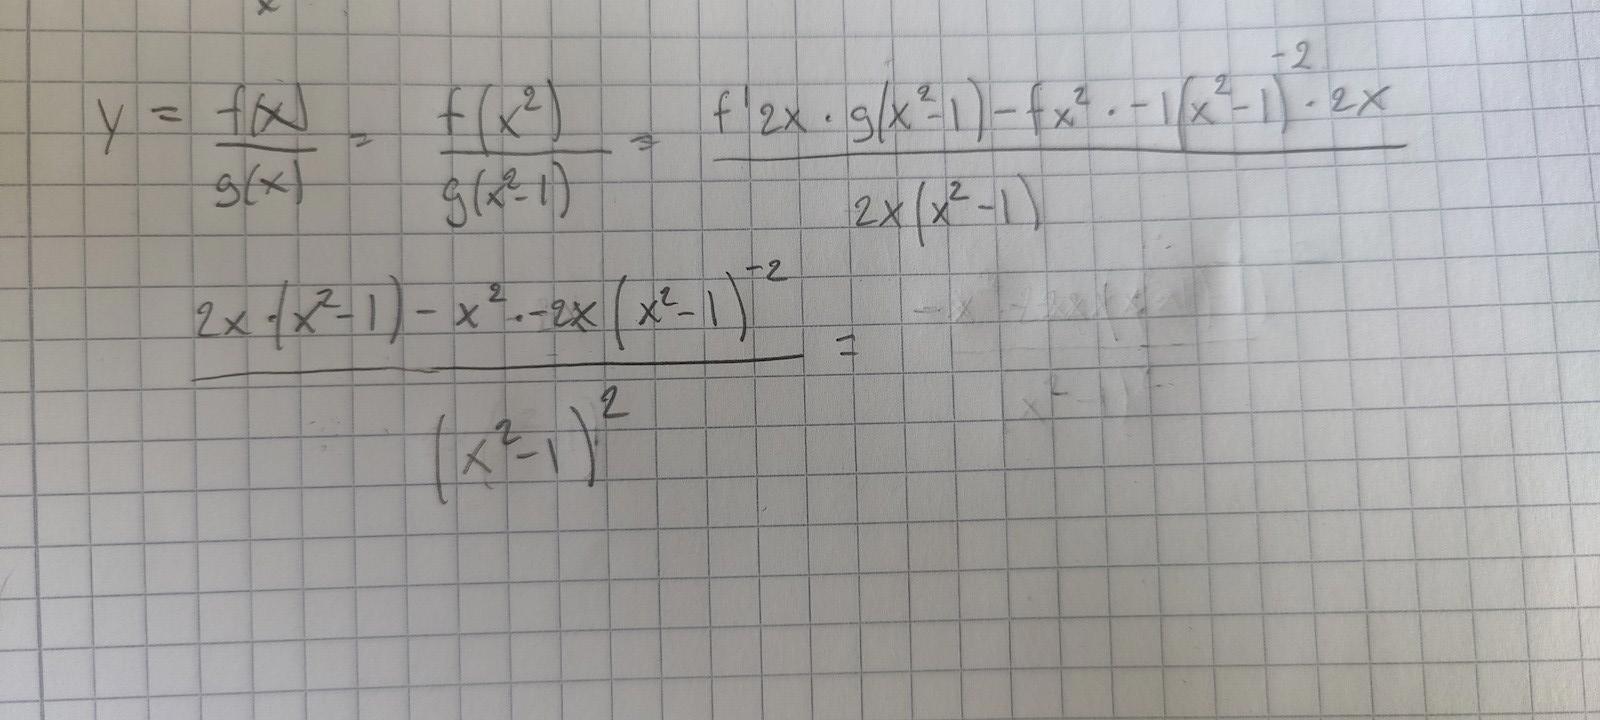 x
y = f(x)/g(x) = f(x²)/g(x²-1) = f'2x · g(x²-1) - fx² · -1(x²-1)⁻² · 2x / 2x(x²-1)
2x·(x²-1) - x² · -2x(x²-1)⁻² / (x²-1)² =